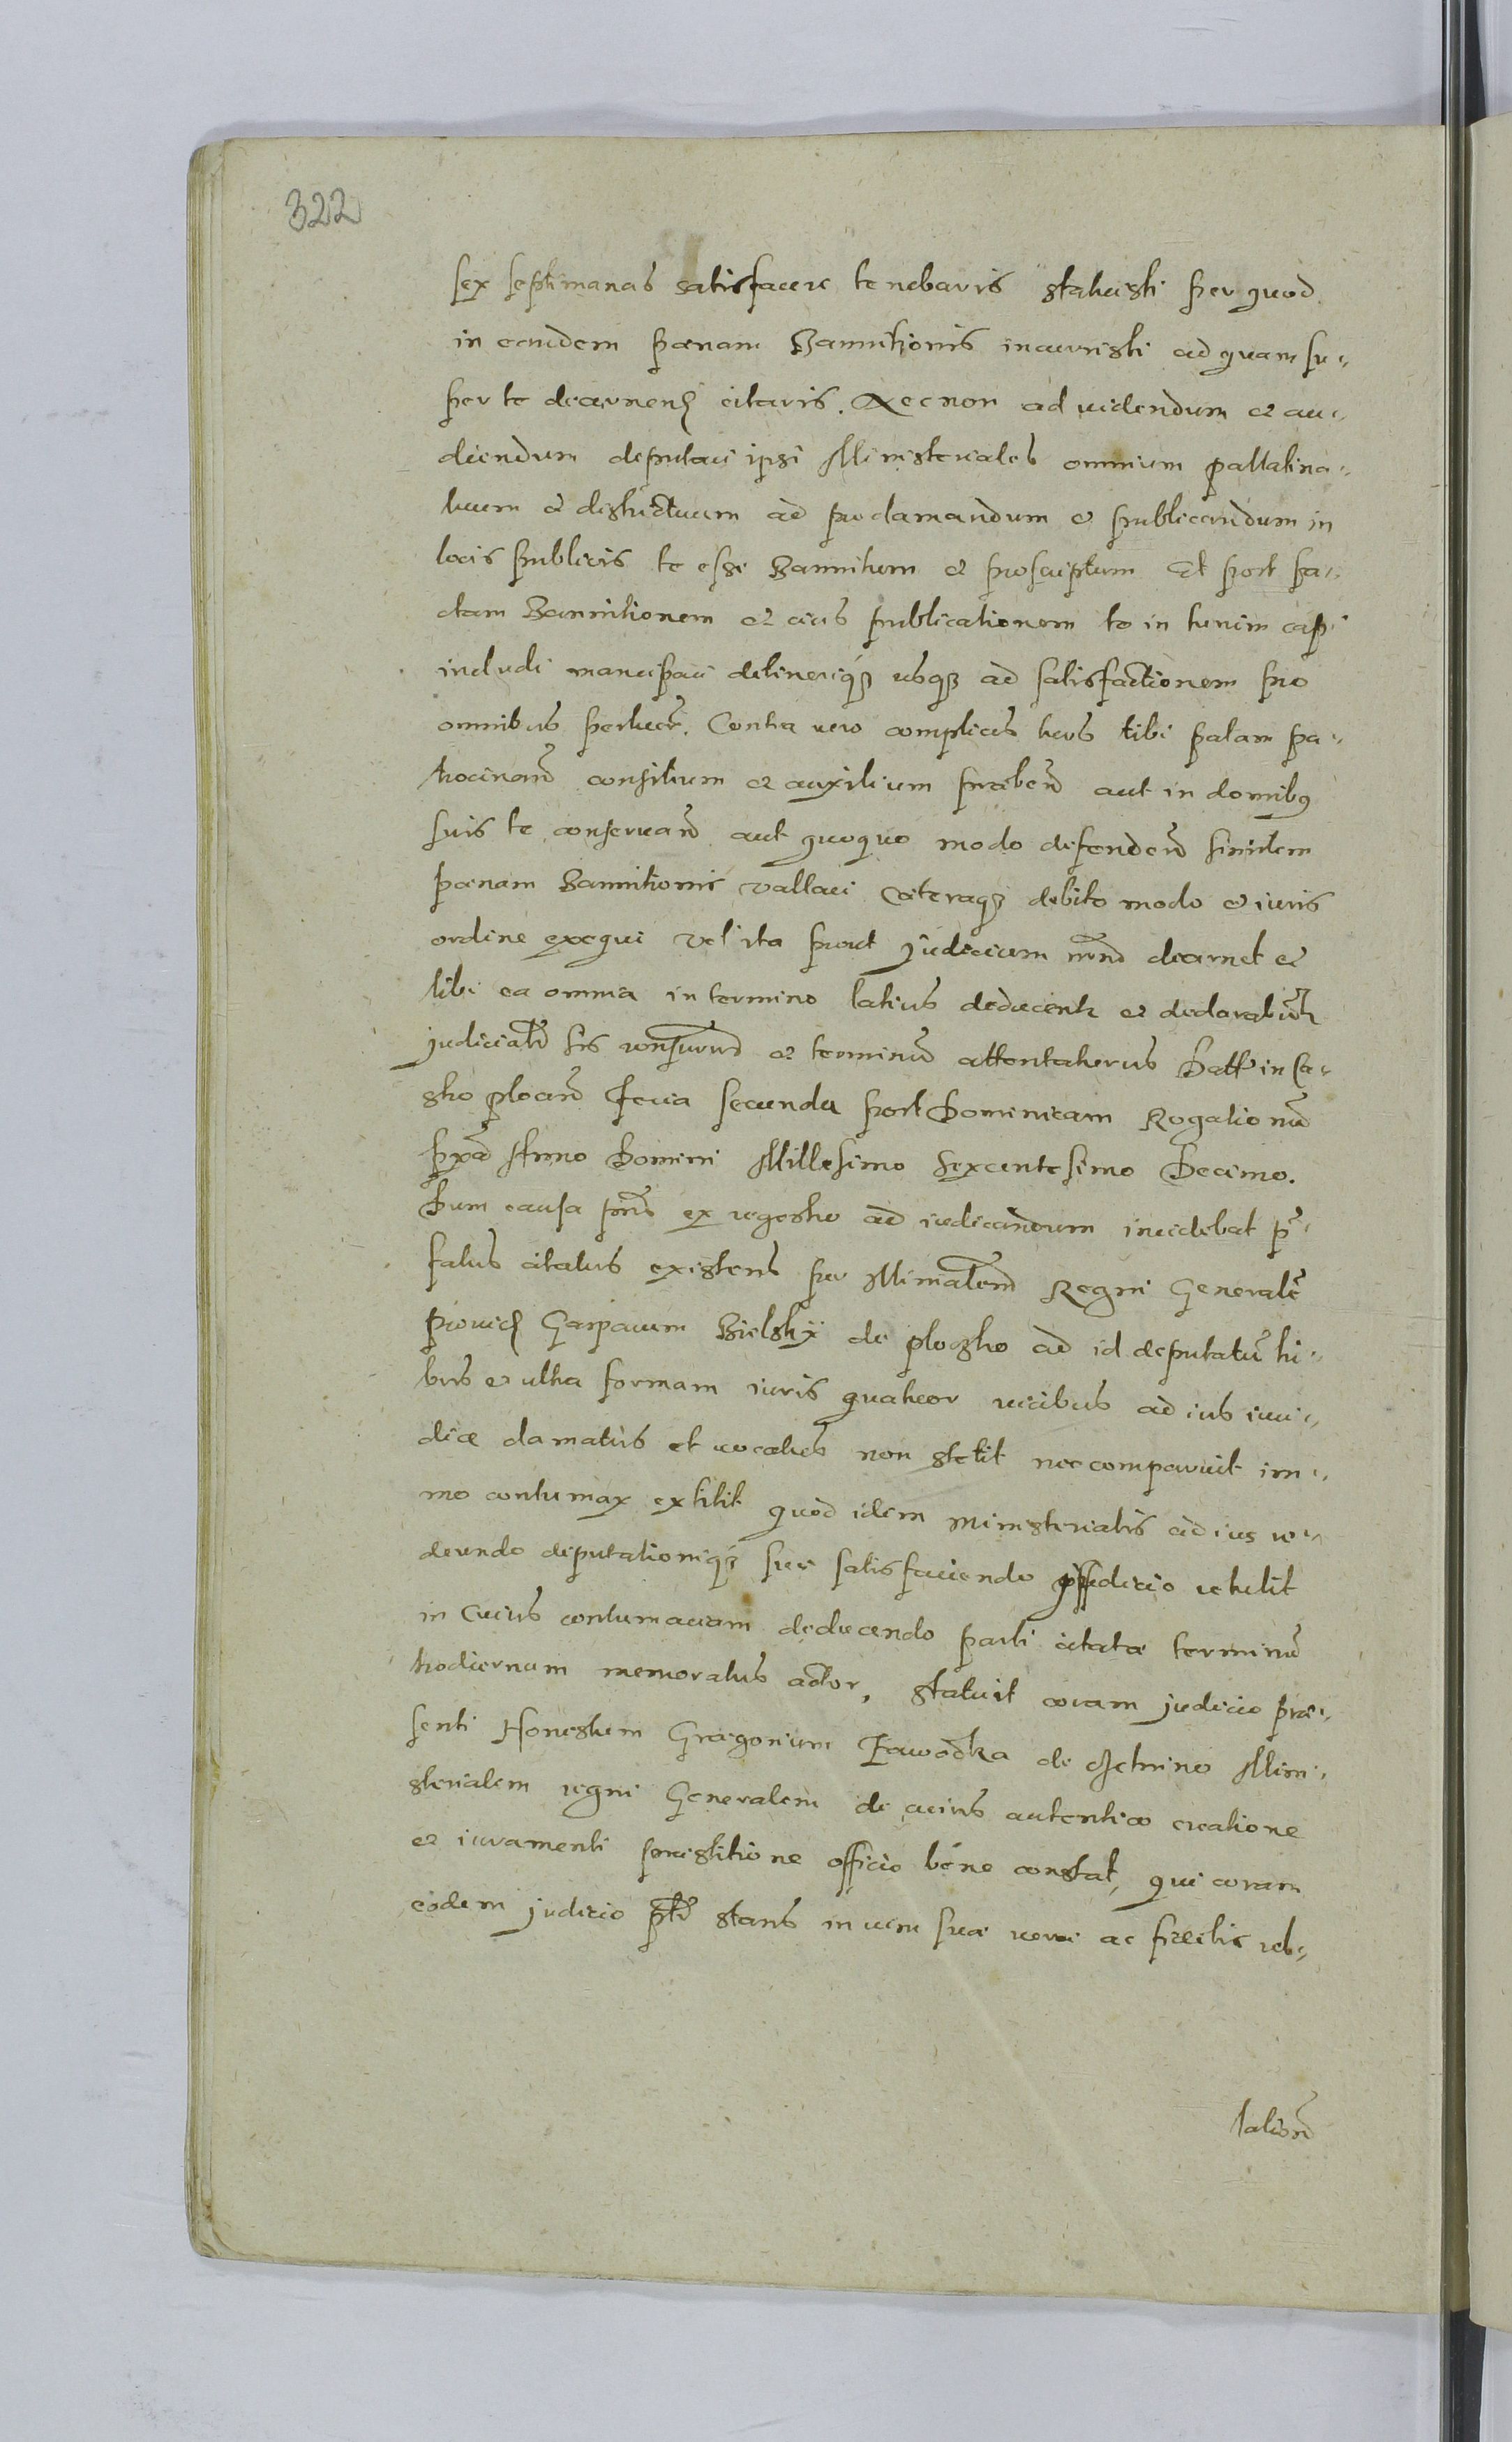 322
sex septimanas satisfacere tenebaris statuisti per quod
in eandem pœnam Bannitionis incurristi ad quam su-
per te decernen citaris. Necnon ad videndum et au-
diendum deputari ipsi Ministeriales omnium pallatina-
tuum et districtuum ad proclamandum et publicandum in
locis publicis te esse Bannitum et proscriptum Et post fa-
ctam Bannitionem et eius publicationem te in turrim capi
includi mancipari detineriq usq ad satisfactionem pro
omnibus pertract. Contra vero complices tuos tibi palam pa-
trocinan consilium et auxilium præben aut in domibq
suis te conservan aut quoquo modo defenden similem
pœnam Bannitionis vallari Cæteraq debito modo et iuris
ordine exequi vel ita prout Judicium decernet et
tibi ea omnia in termino latius deducentr et declarabuntr
judicialr sis et terminum attentaturus Datt in Ca-
stro plocen Feria secunda post Dominicam Rogationum
pxa Anno Domini Millesimo Sexcentesimo Decimo.
Dum causa pns ex regestro ad iudicandum incidebat p-
fatus citatus existens per Minialem Regni Generalem
provid Gasparum Bielsky de ploczko ad id deputatum tri-
bus et ultra formam iuris quatuor vicibus ad ius iuri-
dice clamatus et vocatus non stetit nec comparuit im-
mo contumax extitit quod idem Ministerialis ad ius re-
deundo deputationiq suæ satisfaciendo Judicio retulit
in Cuius contumaciam deducendo parti citatæ terminum
hodiernum memoratus actor, statuit coram judicio præ-
senti Honestum Gregorium Zawodka de Mini-
sterialem regni Generalem de cuius autentica creatione
et iuramenti præstitione officio bene constat, qui coram
eodem judicio stans in vim suæ veræ ac fidelis rel-
lation